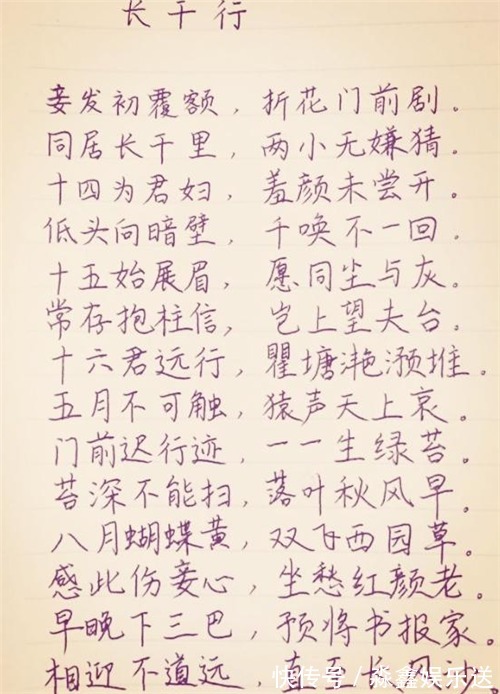 长干行
妾发初覆额，折花门前剧。
同居长干里，两小无嫌猜。
十四为君妇，羞颜未尝开。
低头向暗壁，千唤不一回。
十五始展眉，愿同尘与灰。
常存抱柱信，岂上望夫台。
十六君远行，瞿塘滟滪堆。
五月不可触，猿声天上哀。
门前迟行迹，一一生绿苔。
苔深不能扫，落叶秋风早。
八月蝴蝶黄，双飞西园草。
感此伤妾心，坐愁红颜老。
早晚下三巴，预将书报家。
相迎不道远，
快传号／淼鑫娱乐送